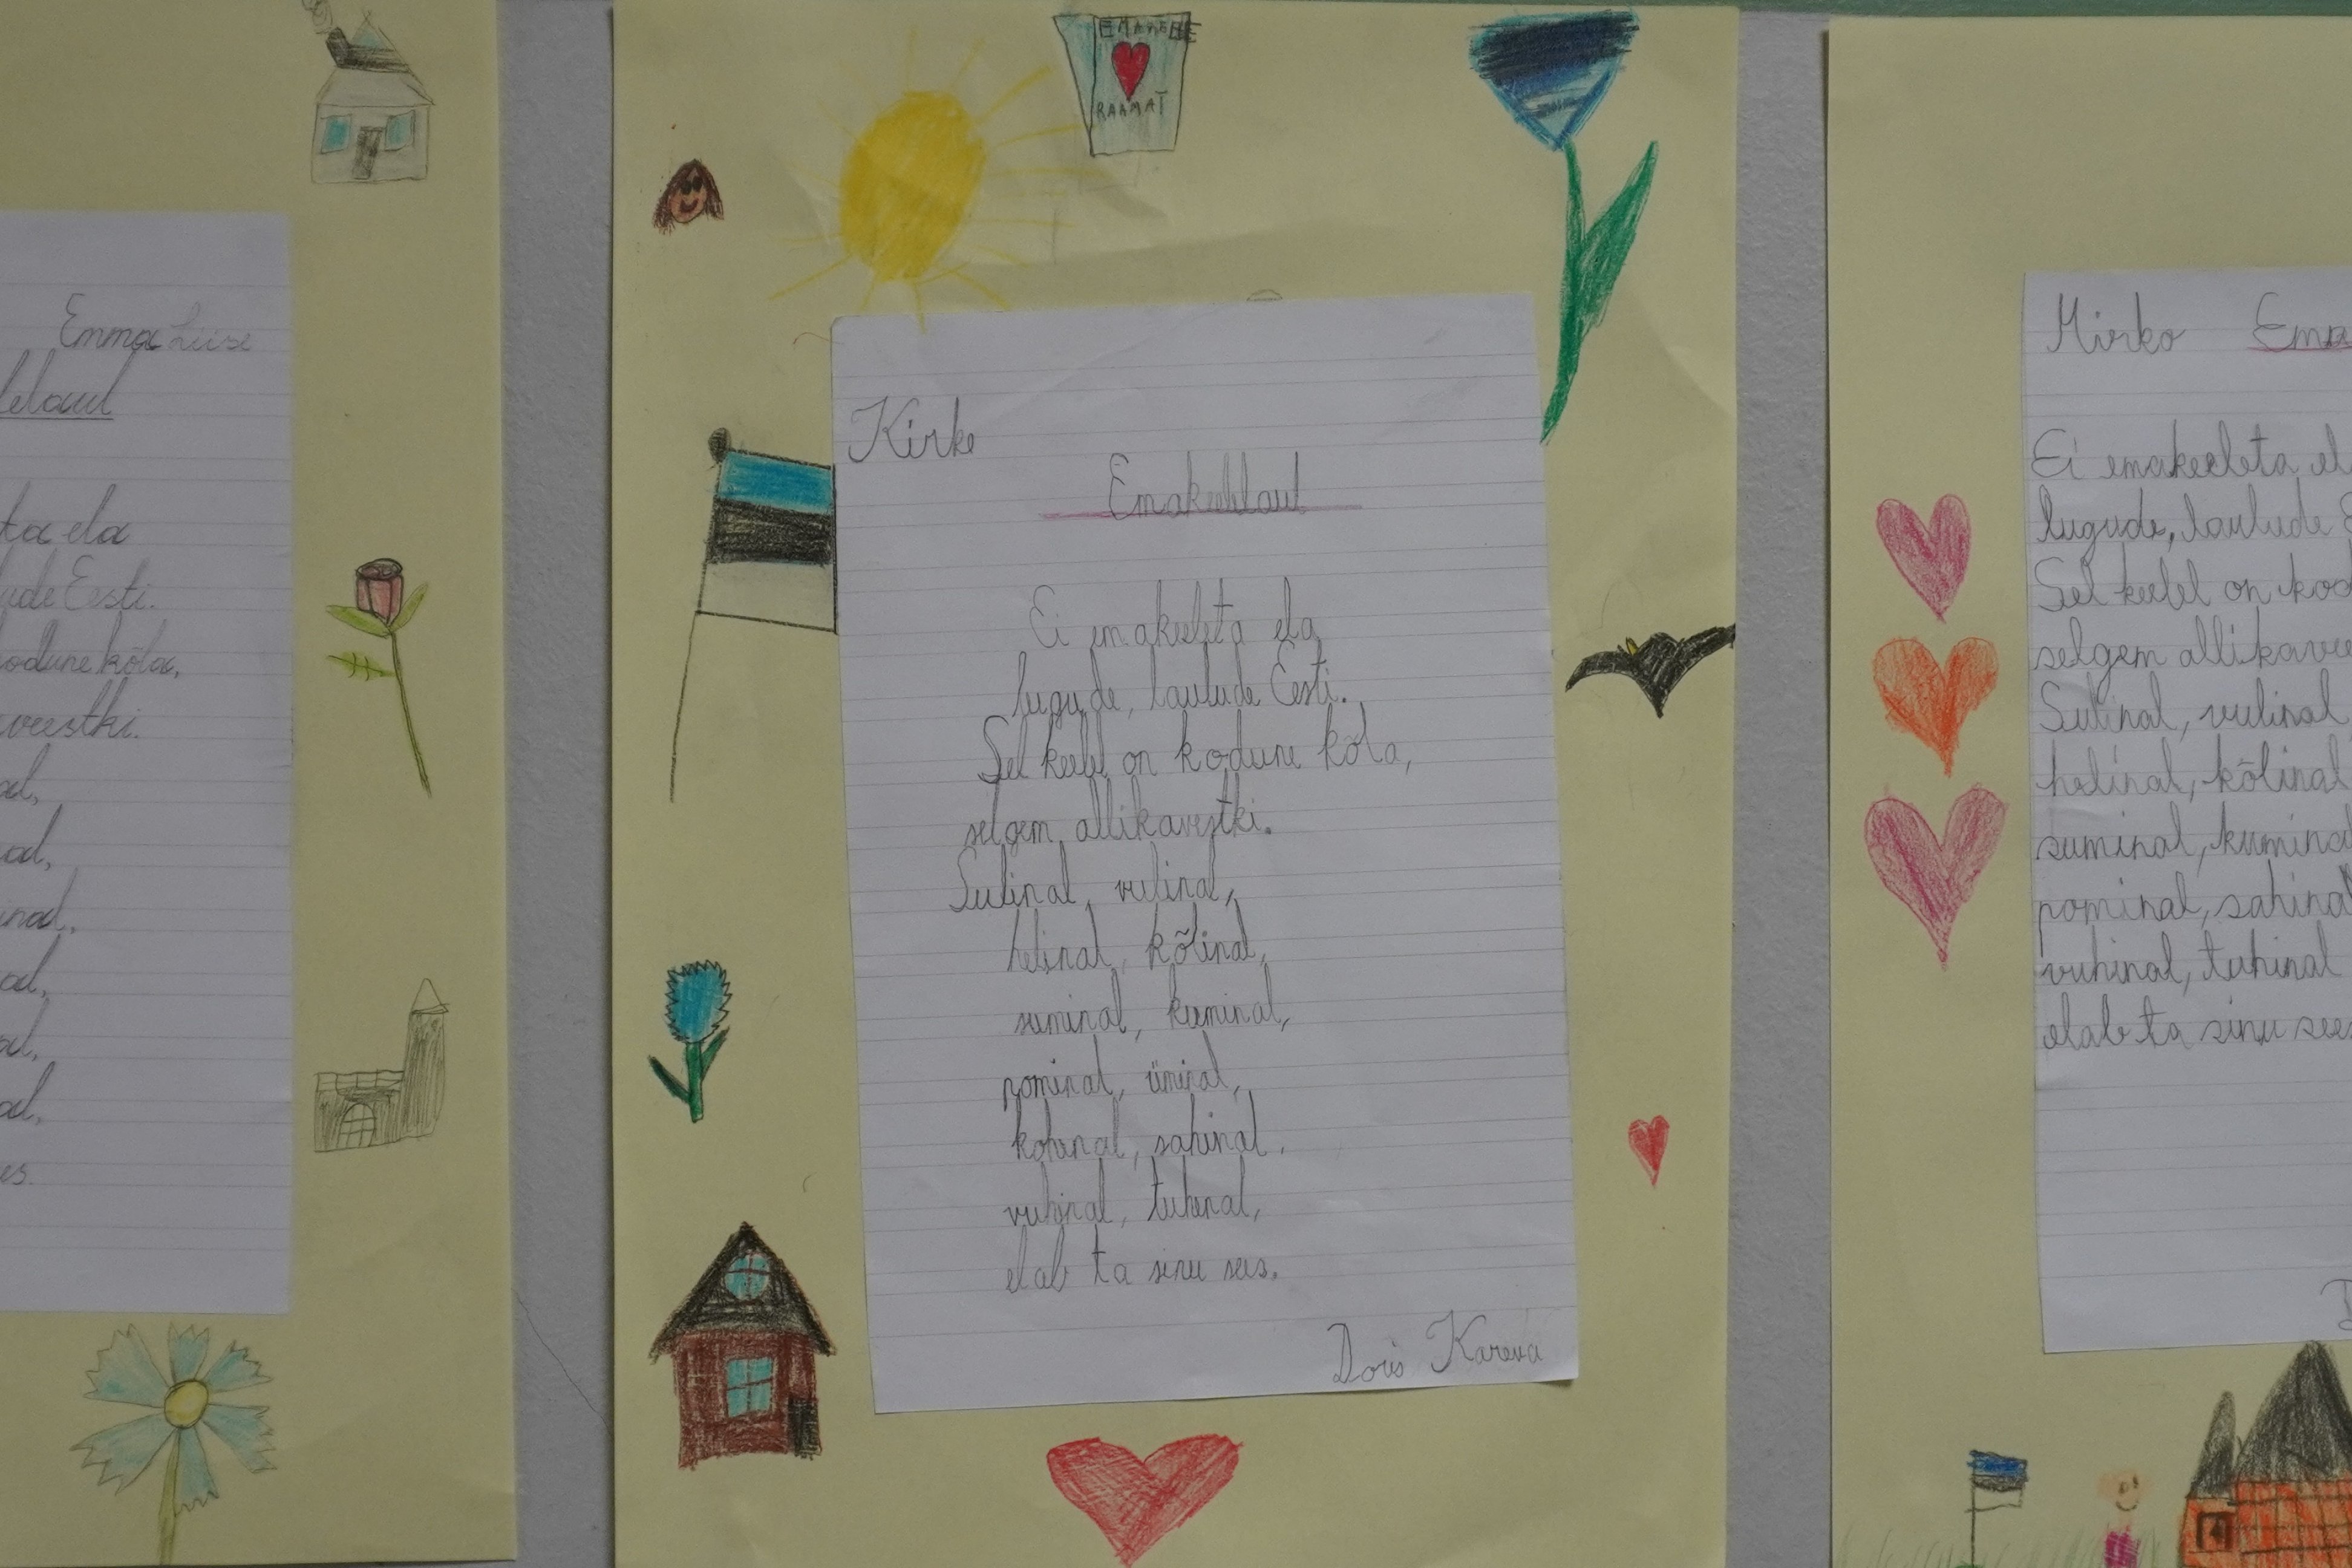 Emma Liise
lelaul
ta ela
ude Eesti.
odune kõla,
veestki.
al,
nal,
inal,
nal,
al,
al,
es.
EMAKEELE
RAAMAT
Kirke
Emakeelelaul
Ei emakeeleta ela
lugude, laulude Eesti.
Sel keelel on kodune kõla,
selgem allikaveestki.
Sulinal, vulinal,
helinal, kõlinal,
suminal, kuminal,
pominal, üminal,
kohinal, sahinal,
vuhinal, tuhinal,
elab ta sinu sees.
Doris Kareva
Mirko Ema
Ei emakeeleta el
lugude, laulude E
Sel keelel on kod
selgem allikavee
Sulinal, vulinal
helinal, kõlinal
suminal, kumina
pominal, sahinal
vuhinal, tuhinal
elab ta sinu sees